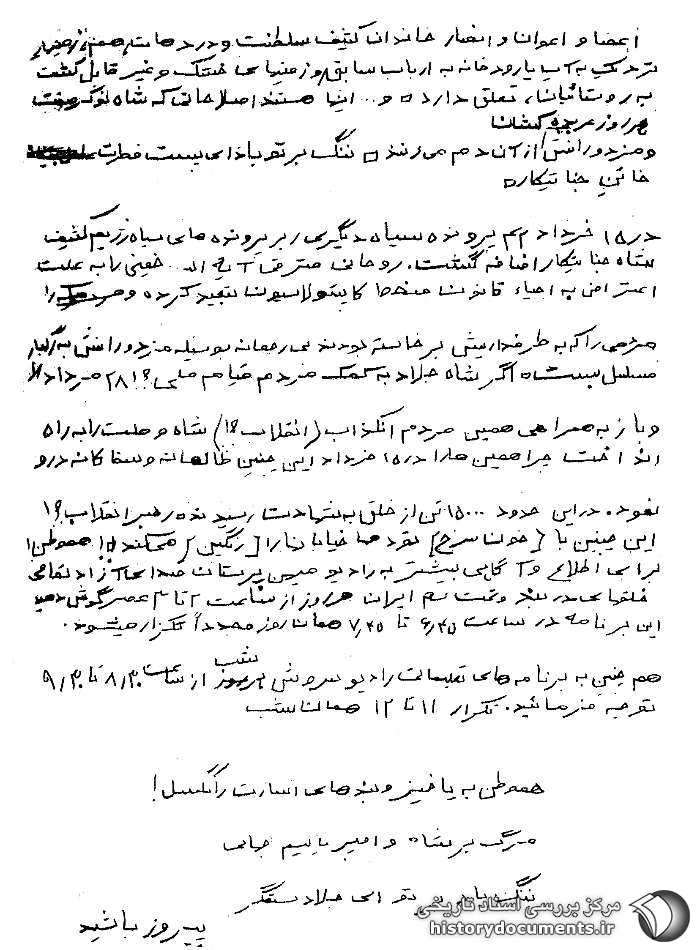 اعضا و اعوان و انصار خاندان کثیف سلطنت و در دهات هم، زمینهای
نزدیک به آب یا رودخانه به ارباب سابق و زمینهای خشک و غیر قابل کشت
به روستائیان، تعلق دارد و ... اینها هستند اصلاحاتی که شاه
هر روز عربده کشان
و مزدورانش از آن دم می‌زنند ننگ بر تو باد ای پست فطرت
خائن جنایتکار
در ۱۵ خرداد ۴۲ پرونده سیاه دیگری بر پرونده های سیاه رژیم کثیف
شاه جنایتکار اضافه گشت. روحانی مترقی آیه اله ... خمینی را به علت
اعتراض به احیاء قانون منحط کاپیتولاسیون تبعید کرده و را
مردمی را که به طرفداریش برخاسته بودند بی رحمانه بوسیله مزدورانش به رگبار
مسلسل بست اگر شاه جلاد به کمک مردم قیام ملی؟! ۲۸ مرداد
و باز به همراهی همین مردم انکذاب (انقلاب؟!) شاه و ملت را به راه
انداخت چرا همین ها را در ۱۵ خرداد این چنین ظالمانه و سفاکانه درو
نمود. در این حدود ۱۵۰۰۰ تن از خلق به شهادت رسیدند رهبر انقلاب؟!
این چنین با {خون سرخ} خیابانها را {رنگین} میکند!! هموطن!
برای اطلاع و آگاهی بیشتر به رادیو میهن پرستان صدای آزاد تمامی
خلقهای در بند و تحت ستم ایران هر روز از ساعت ۲ تا ۴ عصر گوش دهید
این برنامه در ساعت ۶٫۴۵ تا ۷٫۴۵ همان روز مجدداً تکرار میشود.
هم چنین به برنامه های تعلیماتی رادیو سروش هر شب از ساعت ۸٫۳۰ تا ۹٫۳۰
توجه فرمائید. تکرار ۱۱ تا ۱۲ همان شب
هموطن به پا خیز و بندهای اسارت را بگسل!
مرگ بر شاه و امپریالیسم جهانی
ننگ باد بر تو ای جلاد ستمگر
پیروز باشید
مرکز بررسی اسناد تاریخی
historydocuments.ir